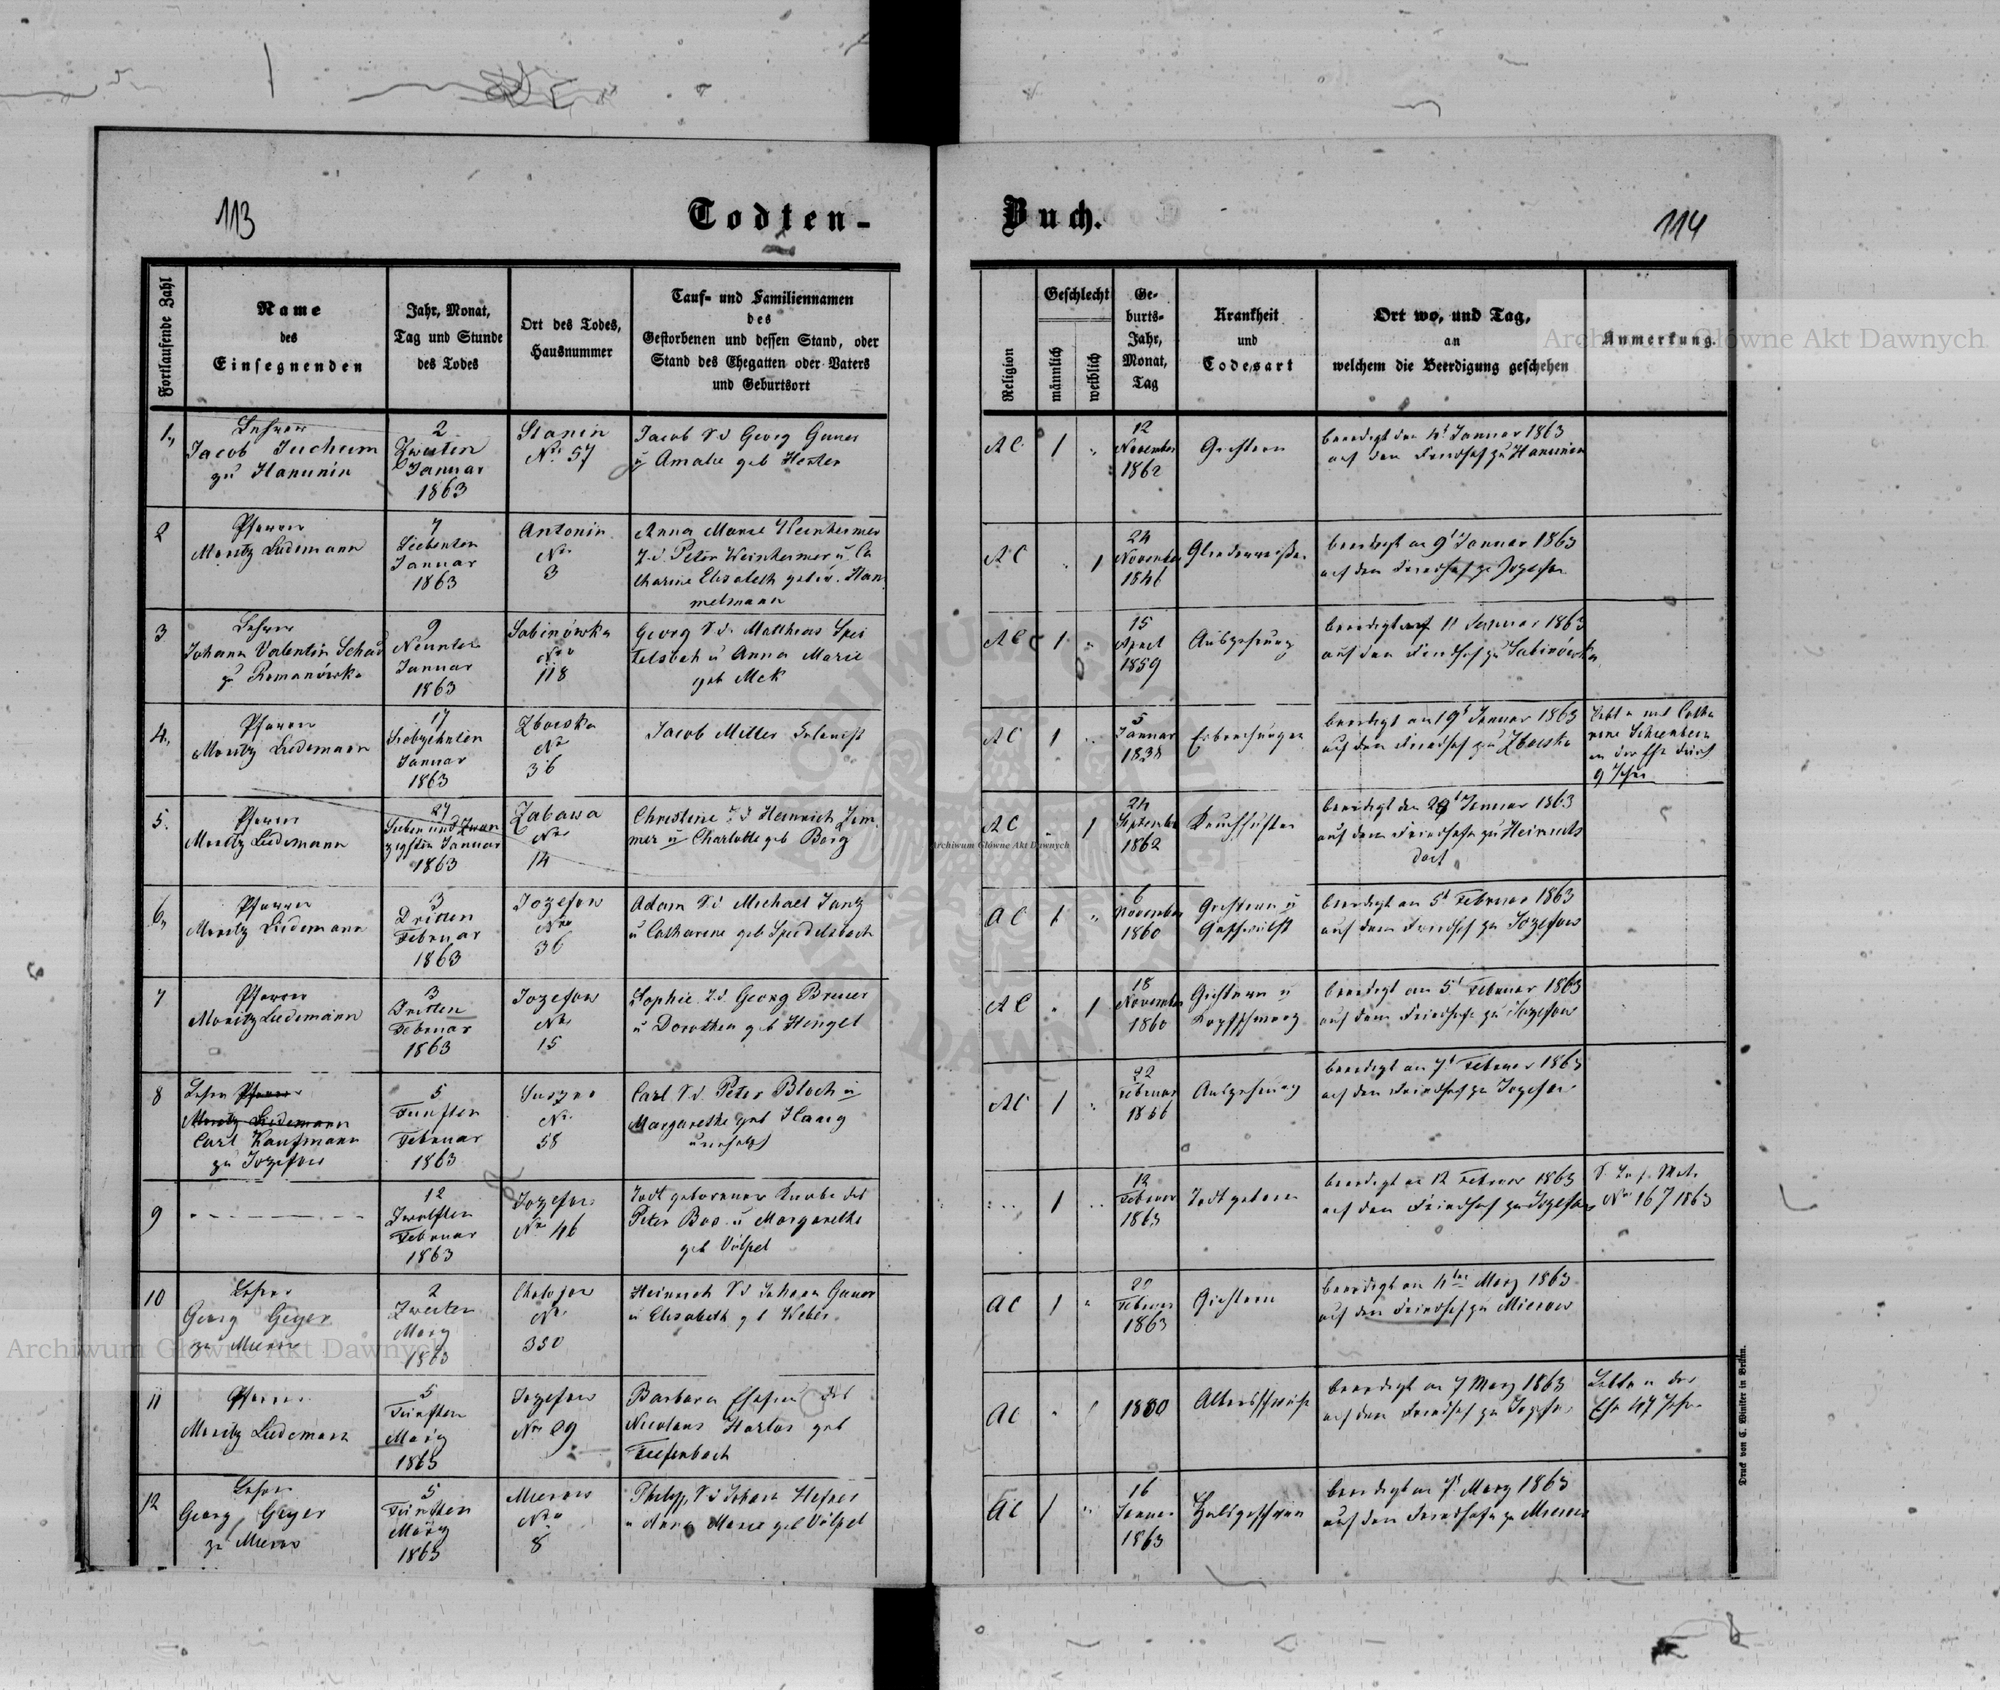 113
Todten-
Buch.
114
Fortlaufende Zahl
Name
des
Einsegnenden
Jahr, Monat,
Tag und Stunde
des Todes
Ort des Todes,
Hausnummer
Tauf- und Familiennamen
des
Gestorbenen und dessen Stand, oder
Stand des Ehegatten oder Vaters
und Geburtsort
Religion
Geschlecht
männlich
weiblich
Ge-
burts-
Jahr,
Monat,
Tag
Krankheit
und
Todesart
Ort wo, und Tag,
an
welchem die Beerdigung geschehen
Anmerkung.
1.
Lehrer
Jacob Juchum
zu Hanunin
2
Zweiten
Januar
1863
Stanin
Nr. 57
Jacob S. d. Georg
u Amalie geb
AC
1
12
November
1862
beerdigt den 4t Januar 1863
auf den Friedhof zu Hanunin
2
Pfarrer
Moritz Ludemann
7
Siebenten
Januar
1863
Antonin
Nro
3
Anna Marie
T. d. Peter
Elisabeth
AC
1
24
November
1846
beerdigt am 9t Januar 1863
auf den Friedhof zu Jozefow
3
Lehrer
Johann Valentin Schad
zu Romanówka
9
Neunten
Januar
1863
Sabinówka
Nro
118
Georg S. d. Mattheus Spei
telsbach u Anna Marie
geb Mek
AC
1
15
April
1859
Auszehrung
beerdigt 11 Januar 1863
auf den Friedhof zu Sabinówka
4.
Pfarrer
Moritz Ludemann
17
Siebzehnten
Januar
1863
Zboiska
Nro
36
Jacob Miller
AC
1
5
Januar
beerdigt am 19t Januar 1863
auf den Friedhof zu Zboiska
Lebte mit Catha
rine
in der Ehe durch
9 Jahre
5.
Pfarrer
Moritz Ludemann
27
Sieben und Zwan
zigsten Januar
1863
Zabawa
Nro
14
Christine T. d. Heinrich Zim
mer u Charlotte geb Berg
AC
1
24
September
1862
Keuchhusten
beerdigt den 29t Januar 1863
auf dem Friedhofe zu Heinrichs
dorf
6.
Pfarrer
Moritz Ludemann
3
Dritten
Februar
1863
Jozefow
Nro
36
Adam S. d. Michael Janz
u Catharine geb Speidelsbach
AC
1
6
November
1860
u
Geschwulst
beerdigt am 5t Februar 1863
auf dem Friedhof zu Jozefow
7
Pfarrer
Moritz Ludemann
3
Dritten
Februar
1863
Jozefow
Nro
15
Sophie T. d. Georg
u Dorothea geb Hengel
AC
1
18
November
1860
u
Kopfschmerz
beerdigt am 5t Februar 1863
auf dem Friedhofe zu Jozefow
8
Lehrer Pfarrer
Moritz Ludemann
Carl Kaufmann
zu Jozefow
5
Fünften
Februar
1863
Nro
58
Carl S. d. Peter Bloch u
Margarethe geb Haarg
AC
1
22
Februar
Auszehrung
beerdigt am 7t Februar 1863
auf den Friedhof zu Jozefow
9
12
Zwölften
Februar
1863
Jozefow
Nro 46
Todt geborener Knabe des
Peter Bos u Margarethe
geb Völpel
1
12
Februar
1863
Todt geboren
beerdigt am 12 Februar 1863
auf dem Friedhof zu Jozefow
Nro 167 1863
10
Lehrer
Georg Geyer
zu Mierow
2
Zweiten
März
1863
Chołojow
Nro
350
Heinrich S. d. Johann
u Elisabeth geb Weber
AC
1
Februar
1863
beerdigt am 4ten März 1863
auf den Friedhof zu Mierow
11
Pfarrer
Moritz Ludemann
5
Fünften
März
1863
Jozefow
Nro 29
Barbara Ehefrau des
Nicolaus Harlos geb
Tiefenbach
AC
1
1800
Altersschwäche
beerdigt am 7 März 1863
auf den Friedhof zu Jozefow
Lebte in der
Ehe 47 Jahre
12
Lehrer
Georg Geyer
zu Mierow
5
Fünften
März
1863
Mierow
Nro
8
Philipp S. d. Johann Hefner
u Anna Marie geb Völpel
AC
1
16
Januar
1863
beerdigt am 7t März 1863
auf den Friedhofe zu Mierow
Druck von C. Winiker in Brünn.
Archiwum Główne Akt Dawnych
Archiwum Główne Akt Dawnych
Archiwum Główne Akt Dawnych